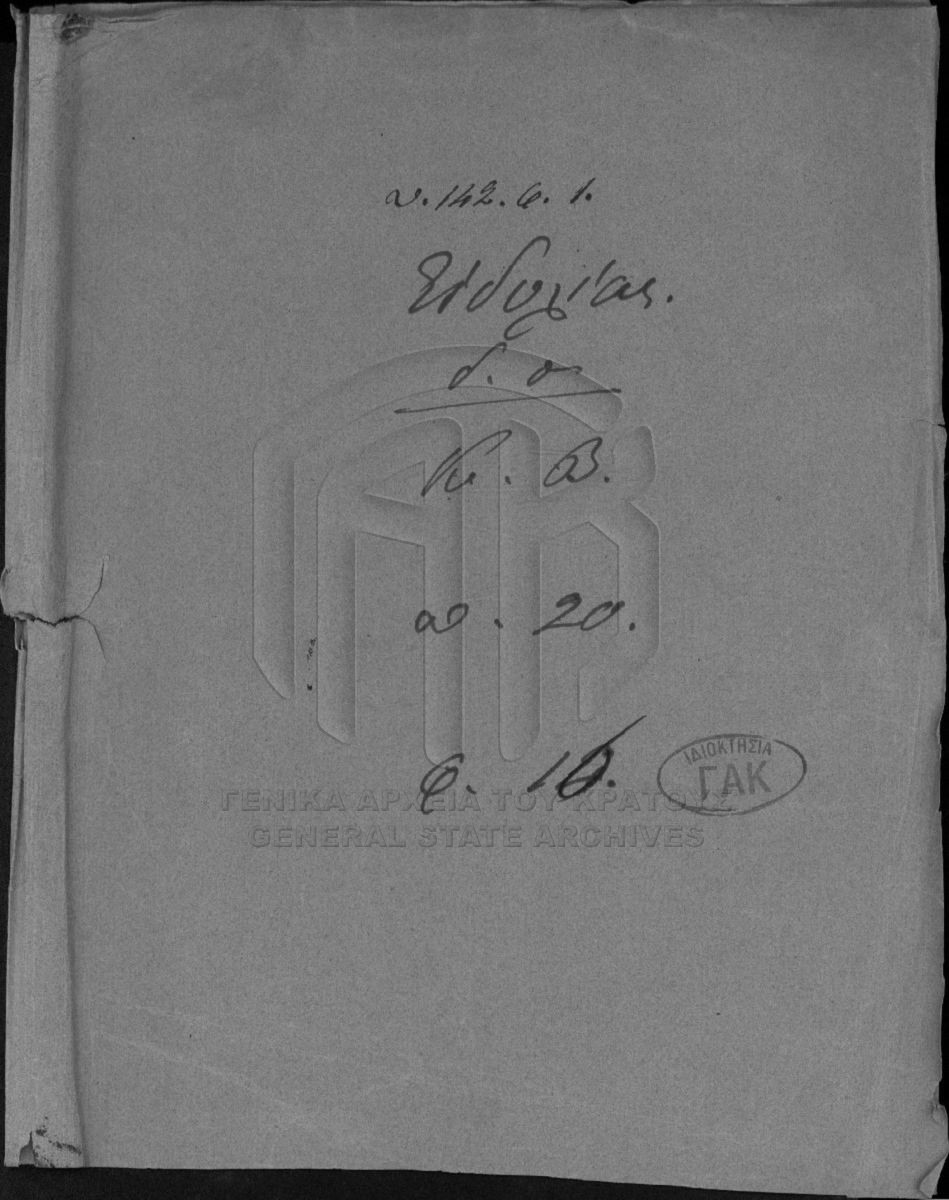 ν. 142. φ. 1.
δ. σ
Κι. Β.
α . 20.
φ. 16.
ΙΔΙΟΚΤΗΣΙΑ
ΓΑΚ
ΓΕΝΙΚΑ ΑΡΧΕΙΑ ΤΟΥ ΚΡΑΤΟΥΣ
GENERAL STATE ARCHIVES